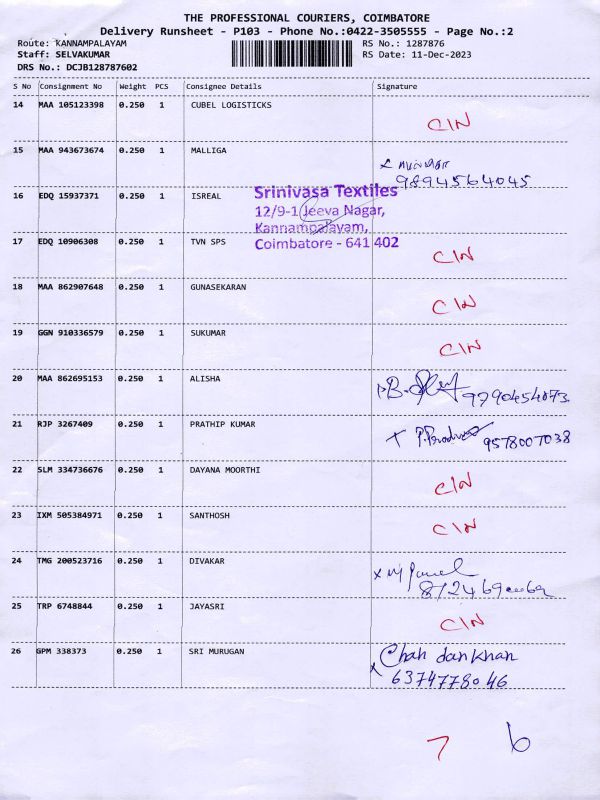 THE PROFESSIONAL COURIERS, COIMBATORE
Delivery Runsheet - P103 - Phone No.:0422-3505555 - Page No.:2
Route: KANNAMPALAYAM RS No.: 1287876
Staff: SELVAKUMAR RS Date: 11-Dec-2023
DRS No.: DCJB128787602
S No Consignment No Weight PCS Consignee Details Signature
14 MAA 105123398 0.250 1 CUBEL LOGISTICKS
CIN
15 MAA 943673674 0.250 1 MALLIGA
9894564045
16 EDQ 15937371 0.250 1 ISREAL
Srinivasa Textiles
12/9-1 Jeeva Nagar,
Kannampalayam,
Coimbatore - 641 402
17 EDQ 10906308 0.250 1 TVN SPS
CIN
18 MAA 862907648 0.250 1 GUNASEKARAN
CIN
19 GGN 910336579 0.250 1 SUKUMAR
CIN
20 MAA 862695153 0.250 1 ALISHA
9790454073
21 RJP 3267409 0.250 1 PRATHIP KUMAR
9578007038
22 SLM 334736676 0.250 1 DAYANA MOORTHI
CIN
23 IXM 505384971 0.250 1 SANTHOSH
CIN
24 TMG 200523716 0.250 1 DIVAKAR
25 TRP 6748844 0.250 1 JAYASRI
CIN
26 GPM 338373 0.250 1 SRI MURUGAN
Chan dan Khan
6374778046
7 6